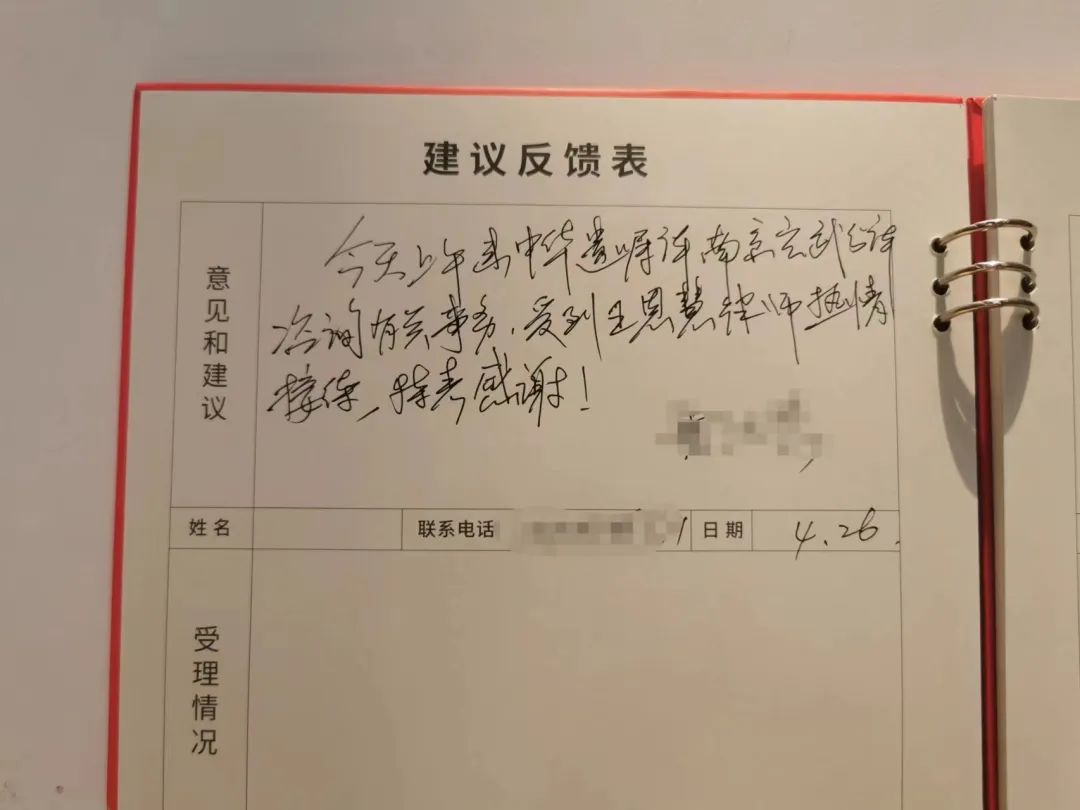 建议反馈表
意见和建议
今天上午来中华遗嘱库南京玄武分库
咨询有关事务，受到王恩慧律师热情
接待，特表感谢！
姓名
联系电话
1
日期
4.26.
受理情况